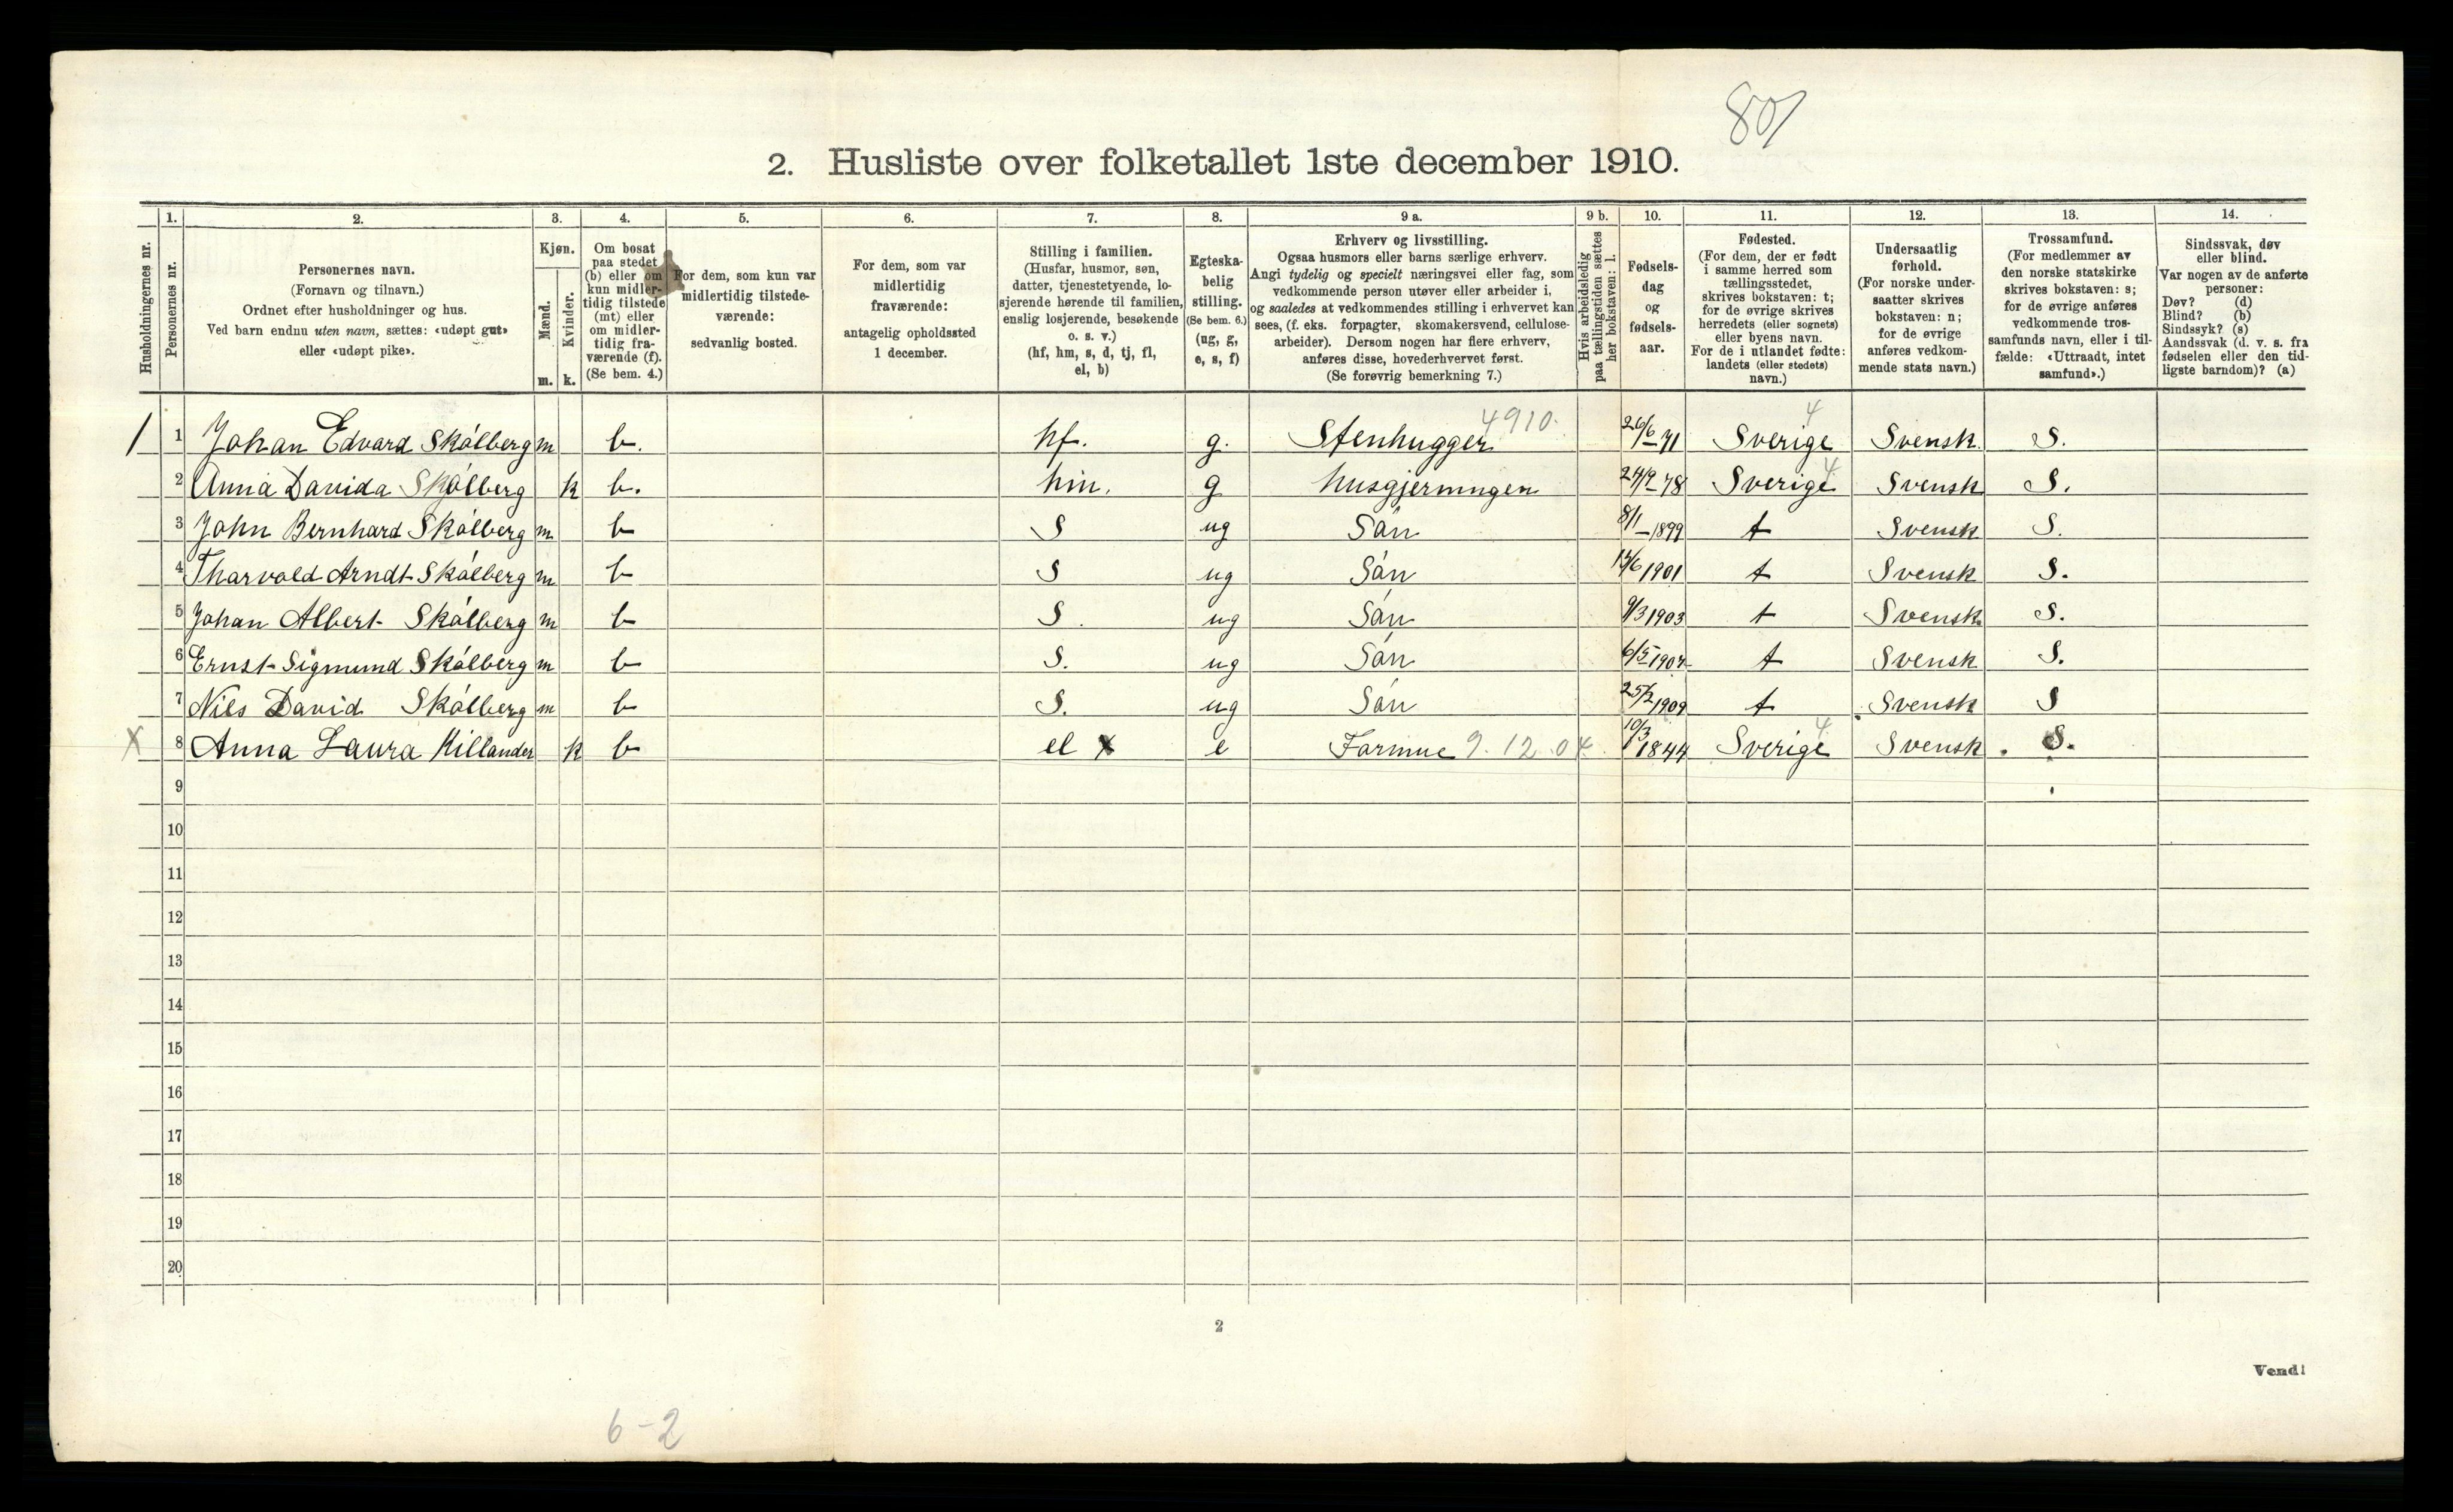 80/
2. Husliste over folketallet 1ste december 1910.
1. 2. 3. 4. 5. 6. 7. 8. 9 a. 9 b. 10. 11. 12. 13. 14.
Husholdningernes nr.
Personernes nr.
Personernes navn.
(Fornavn og tilnavn.)
Ordnet efter husholdninger og hus.
Ved barn endnu uten navn, sættes: «udøpt gut»
eller «udøpt pike».
Kjøn.
Mænd.
Kvinder.
m. k.
Om bosat
paa stedet
(b) eller om
kun midler-
tidig tilstede
(mt) eller
om midler-
tidig fra-
værende (f).
(Se bem. 4.)
For dem, som kun var
midlertidig tilstede-
værende:
sedvanlig bosted.
For dem, som var
midlertidig
fraværende:
antagelig opholdssted
1 december.
Stilling i familien.
(Husfar, husmor, søn,
datter, tjenestetyende, lo-
sjerende hørende til familien,
enslig losjerende, besøkende
o. s. v.)
(hf, hm, s, d, tj, fl,
el, b)
Egteska-
belig
stilling.
(Se bem. 6.)
(ug, g,
e, s, f)
Erhverv og livsstilling.
Ogsaa husmors eller barns særlige erhverv.
Angi tydelig og specielt næringsvei eller fag, som
vedkommende person utøver eller arbeider i,
og saaledes at vedkommendes stilling i erhvervet kan
sees, (f. eks. forpagter, skomakersvend, cellulose-
arbeider). Dersom nogen har flere erhverv,
anføres disse, hovederhvervet først.
(Se forøvrig bemerkning 7.)
Hvis arbeidsledig
paa tællingstiden sættes
her bokstaven: l.
Fødsels-
dag
og
fødsels-
aar.
Fødested.
(For dem, der er født
i samme herred som
tællingsstedet,
skrives bokstaven: t;
for de øvrige skrives
herredets (eller sognets)
eller byens navn.
For de i utlandet fødte:
landets (eller stedets)
navn.)
Undersaatlig
forhold.
(For norske under-
saatter skrives
bokstaven: n;
for de øvrige
anføres vedkom-
mende stats navn.)
Trossamfund.
(For medlemmer av
den norske statskirke
skrives bokstaven: s;
for de øvrige anføres
vedkommende tros-
samfunds navn, eller i til-
fælde: «Uttraadt, intet
samfund».)
Sindssvak, døv
eller blind.
Var nogen av de anførte
personer:
Døv? (d)
Blind? (b)
Sindssyk? (s)
Aandssvak (d. v. s. fra
fødselen eller den tid-
ligste barndom)? (a)
1 1 Johan Edvard Skålberg m b. hf. g. Stenhugger 4910. 26/6-71 Sverige 4 Svensk S.
2 Anna Davida Skålberg k b. hm. g husgjerningen 24/9-78 Sverige 4 Svensk S.
3 John Bernhard Skålberg m b S ug Sån 8/1-1899 t Svensk S.
4 Tharvald Arndt Skålberg m b S ug Sån 1901 t Svensk S.
5 Johan Albert Skålberg m b S. ug Sån 9/3 1903 t Svensk S.
6 Ernst Sigmund Skålberg m b S. ug Sån 6/5 t Svensk S.
7 Nils David Skålberg m b S. ug Sån 25/2 1909 t Svensk S
X 8 Anna Laura Killander k b el x e 9.12.04. 10/3 1844 Sverige 4 Svensk. S.
9
10
11
12
13
14
15
16
17
18
19
20
2
Vend!
6-2